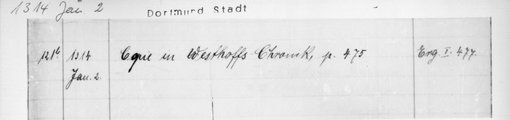 1314 Jan. 2
Dortmund Stadt
121c 1314 Copie in Westhoffs Chronik, p. 475 Erg. I. 477.
Jan. 2.